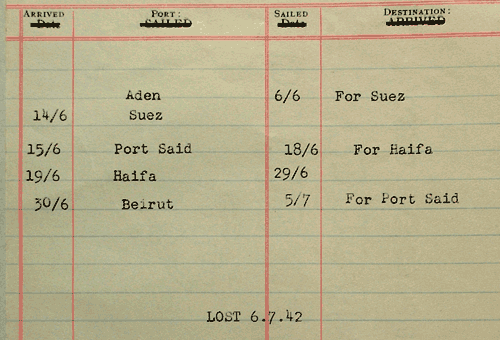 ARRIVED PORT: SAILED DESTINATION:
Date SAILED Date ARRIVED
Aden 6/6 For Suez
14/6 Suez
15/6 Port Said 18/6 For Haifa
19/6 Haifa 29/6
30/6 Beirut 5/7 For Port Said
LOST 6.7.42